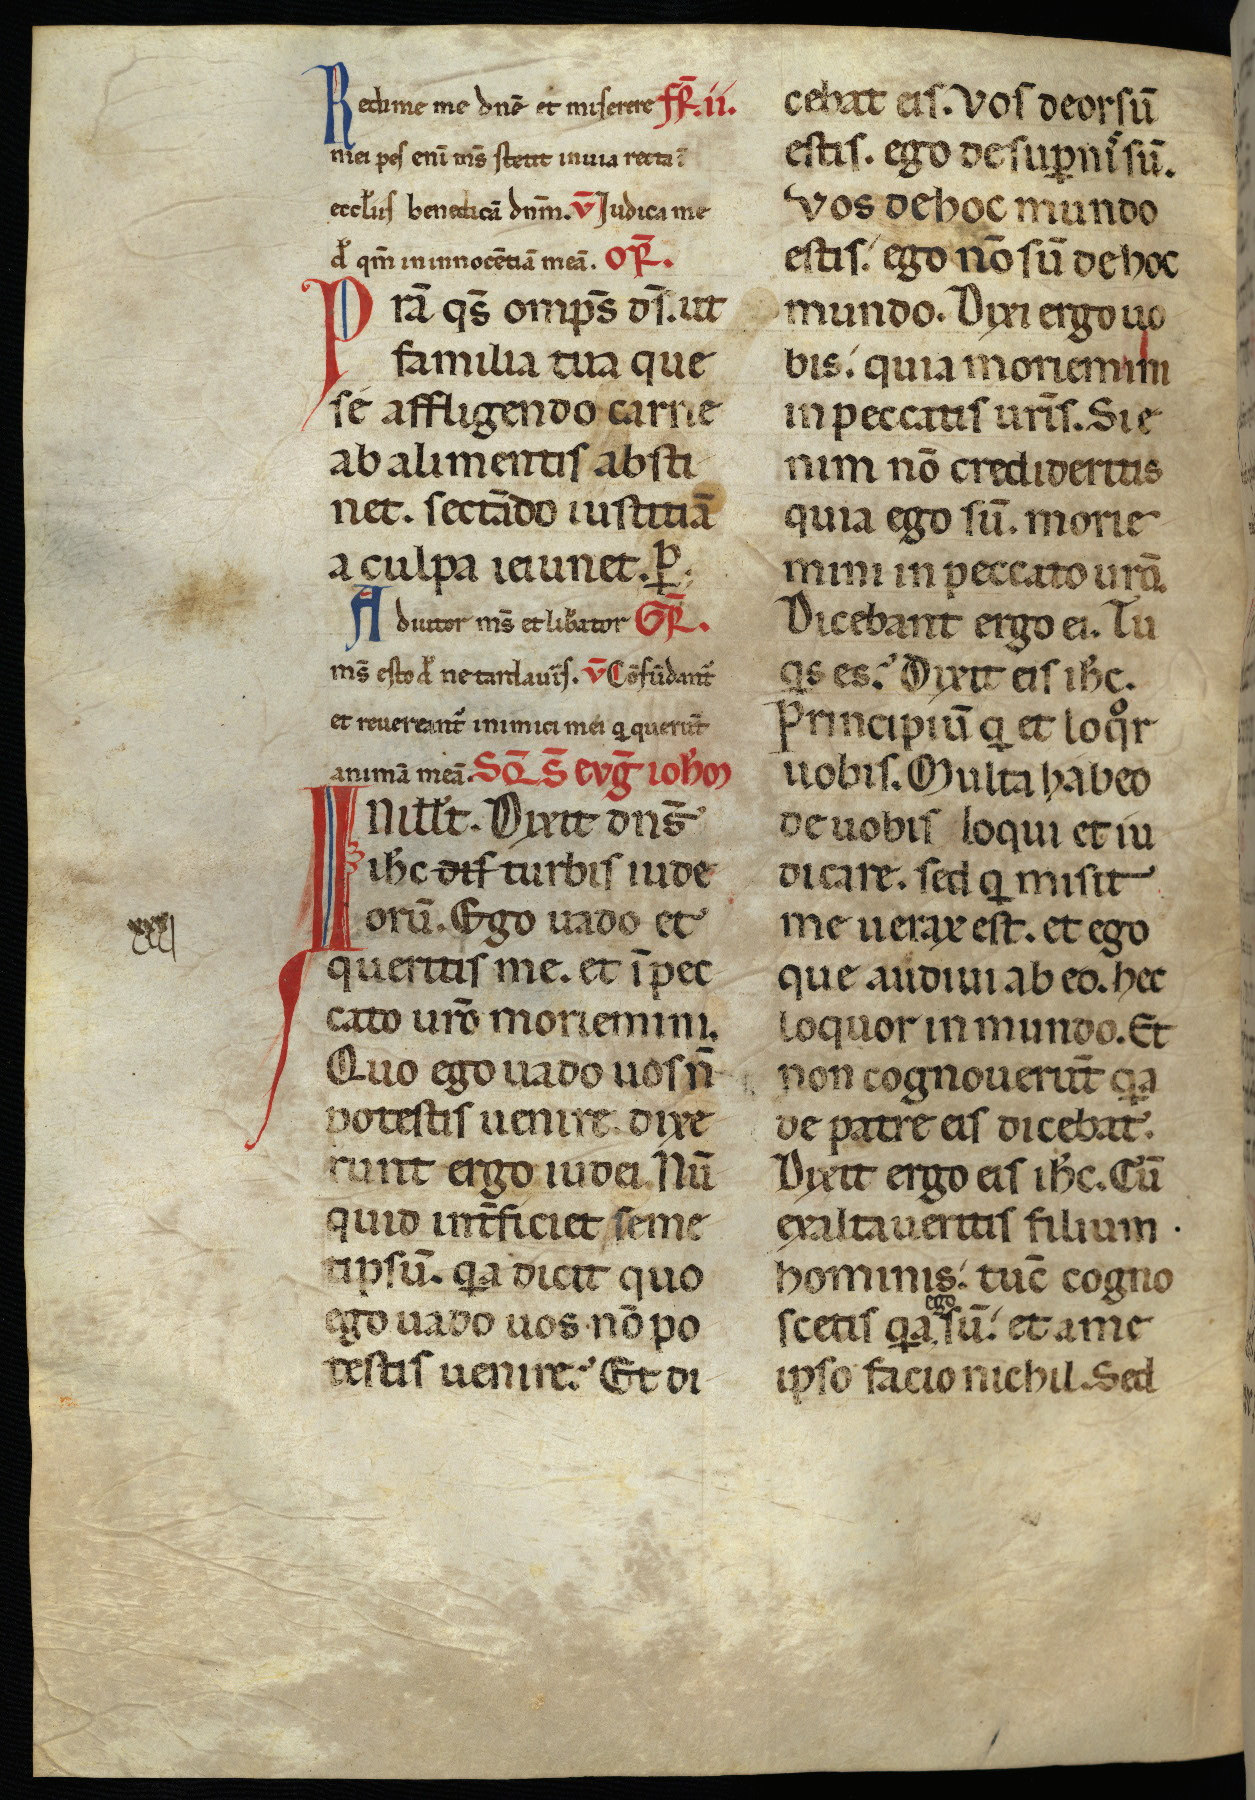 Redime me dn̄e et miserere FR̄. ii.
mei pes eni̅ ms̄ stetit in uia recta i̅
eccl̄iis benedica̅ dn̄m. V̄ Judica me
d̄ qm̄ in innoce̅tia̅ mea̅. OR̄.
Pra̅ qs̄ omps̄ ds̄. ut
familia tua que
se affligendo carne
ab alimentis absti
net. secta̅do iustitia̅
a culpa ieiunet. ꝑ.
Adiutor ms̄ et lib̄ator GR̄.
ms̄ esto d̄ ne tardaui̅s. V̄ Co̅fu̅dant̄
et reuereant̄ inimici mei q̇ querut̄
anima̅ mea̅. SQ̄ S̄ EVḠ ioh̄m
IN ill̄t. Dixit dn̄s
ih̄c dis turbis iude
oru̅. Ego uado et
queritis me. et i̅ pec
cato uro̅ moriemini.
Quo ego uado uos n̄
potestis uenire. dixe
runt ergo iudei. Nu̅
quid int̄ficiet seme
tipsu̅. qa dicit quo
ego uado uos no̅ po
testis uenire. Et di
xxxi
cebat eis. Vos deorsu̅
estis. ego de suꝑnis su̅.
Vos de hoc mundo
estis. ego no̅ su̅ de hoc
mundo. Dixi ergo uo
bis. quia moriemini
in peccatis uri̅s. Si e
nim no̅ credideritis
quia ego su̅. morie
mini in peccato uro̅.
Dicebant ergo ei. Tu
qs es. Dixit eis ih̄c.
Principiu̅ q̇ et loqor
uobis. Multa habeo
de uobis loqui et iu
dicare. sed q̇ misit
me uerax est. et ego
que audiui ab eo. hec
loquor in mundo. Et
non cognouerut̄ qa
de patre eis dicebat.
Dixit ergo eis ih̄c. Cu̅
exaltaueritis filium
hominis. tuc̄ cogno
scetis qa ego su̅. et a me
ipso facio nichil. Sed